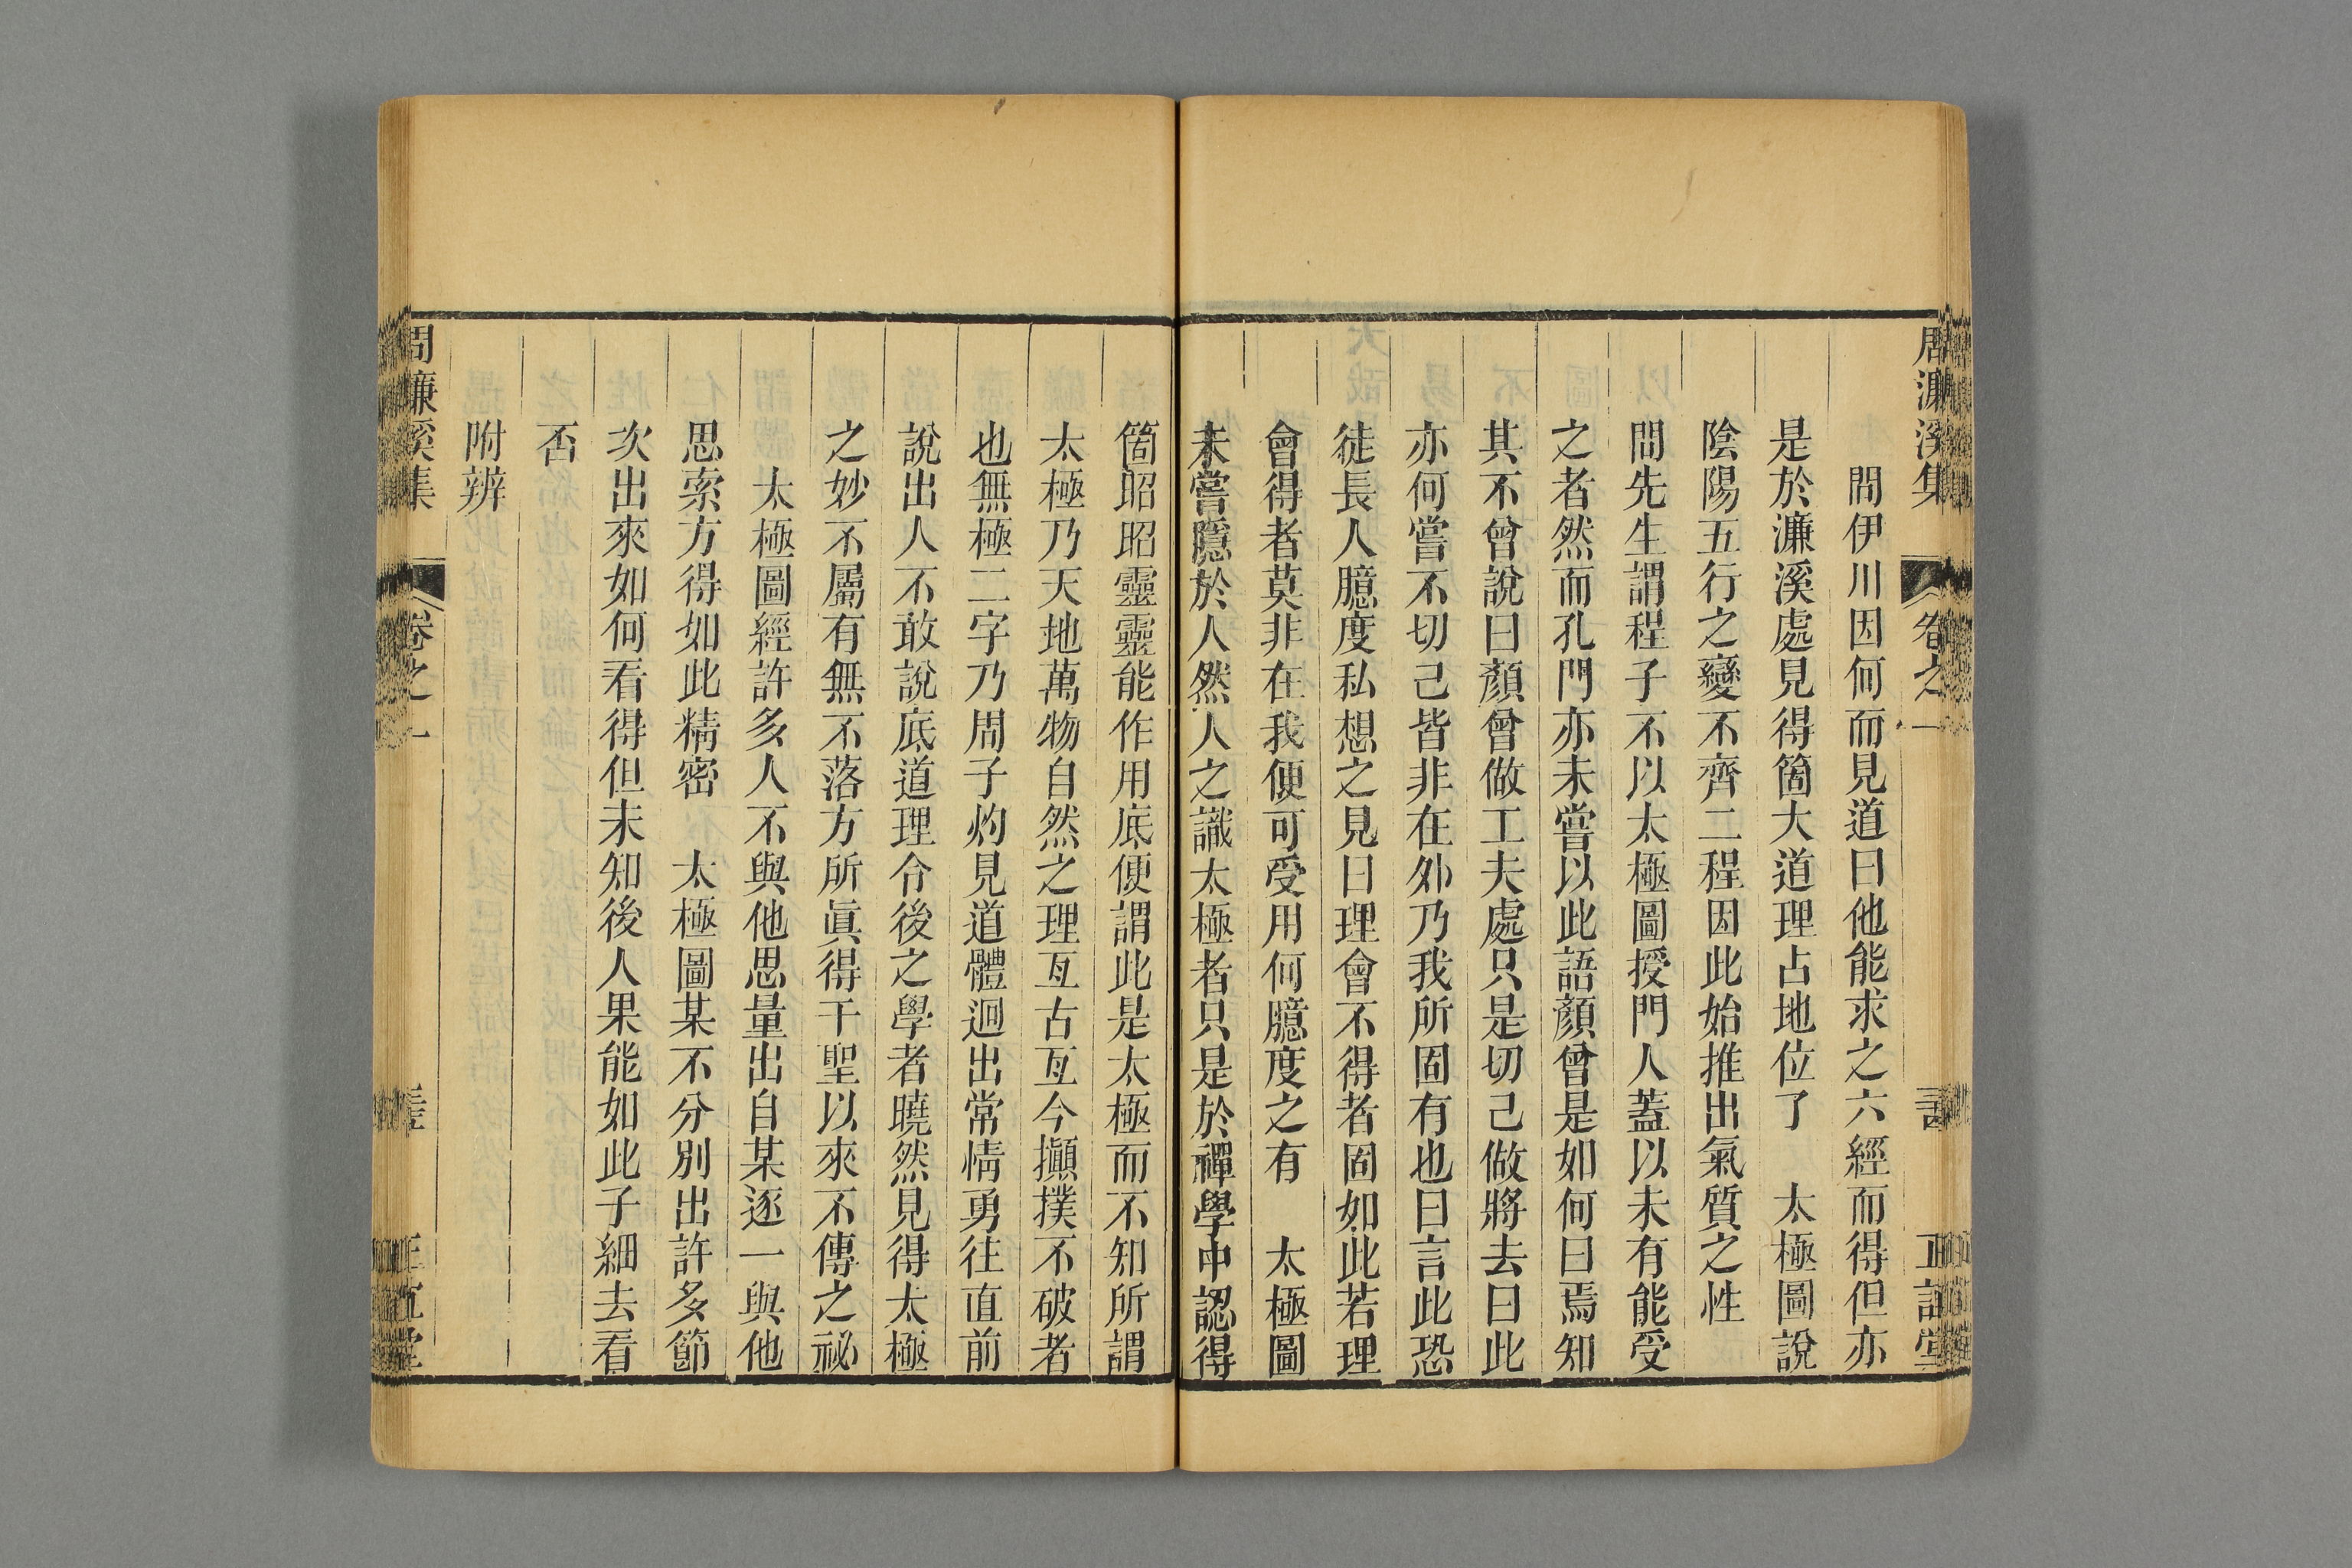 周濂溪集
卷之一
正誼堂
問伊川因何而見道曰他能求之六經而得但亦
是於濂溪處見得箇大道理占地位了　太極圖說
陰陽五行之變不齊二程因此始推出氣質之性
問先生謂程子不以太極圖授門人蓋以未有能受
之者然而孔門亦未嘗以此語顏曾是如何曰焉知
其不曾說曰顏曾做工夫處只是切己做將去曰此
亦何嘗不切己皆非在外乃我所固有也曰言此恐
徒長人臆度私想之見曰理會不得者固如此若理
會得者莫非在我便可受用何臆度之有　太極圖
未嘗隱於人然人之識太極者只是於禪學中認得
箇昭昭靈靈能作用底便謂此是太極而不知所謂
太極乃天地萬物自然之理亙古亙今攧撲不破者
也無極二字乃周子灼見道體迥出常情勇往直前
說出人不敢說底道理令後之學者曉然見得太極
之妙不屬有無不落方所眞得千聖以來不傳之祕
太極圖經許多人不與他思量出自某逐一與他
思索方得如此精密　太極圖某不分別出許多節
次出來如何看得但未知後人果能如此子細去看
否
附辨
周濂溪集
卷之一
正誼堂